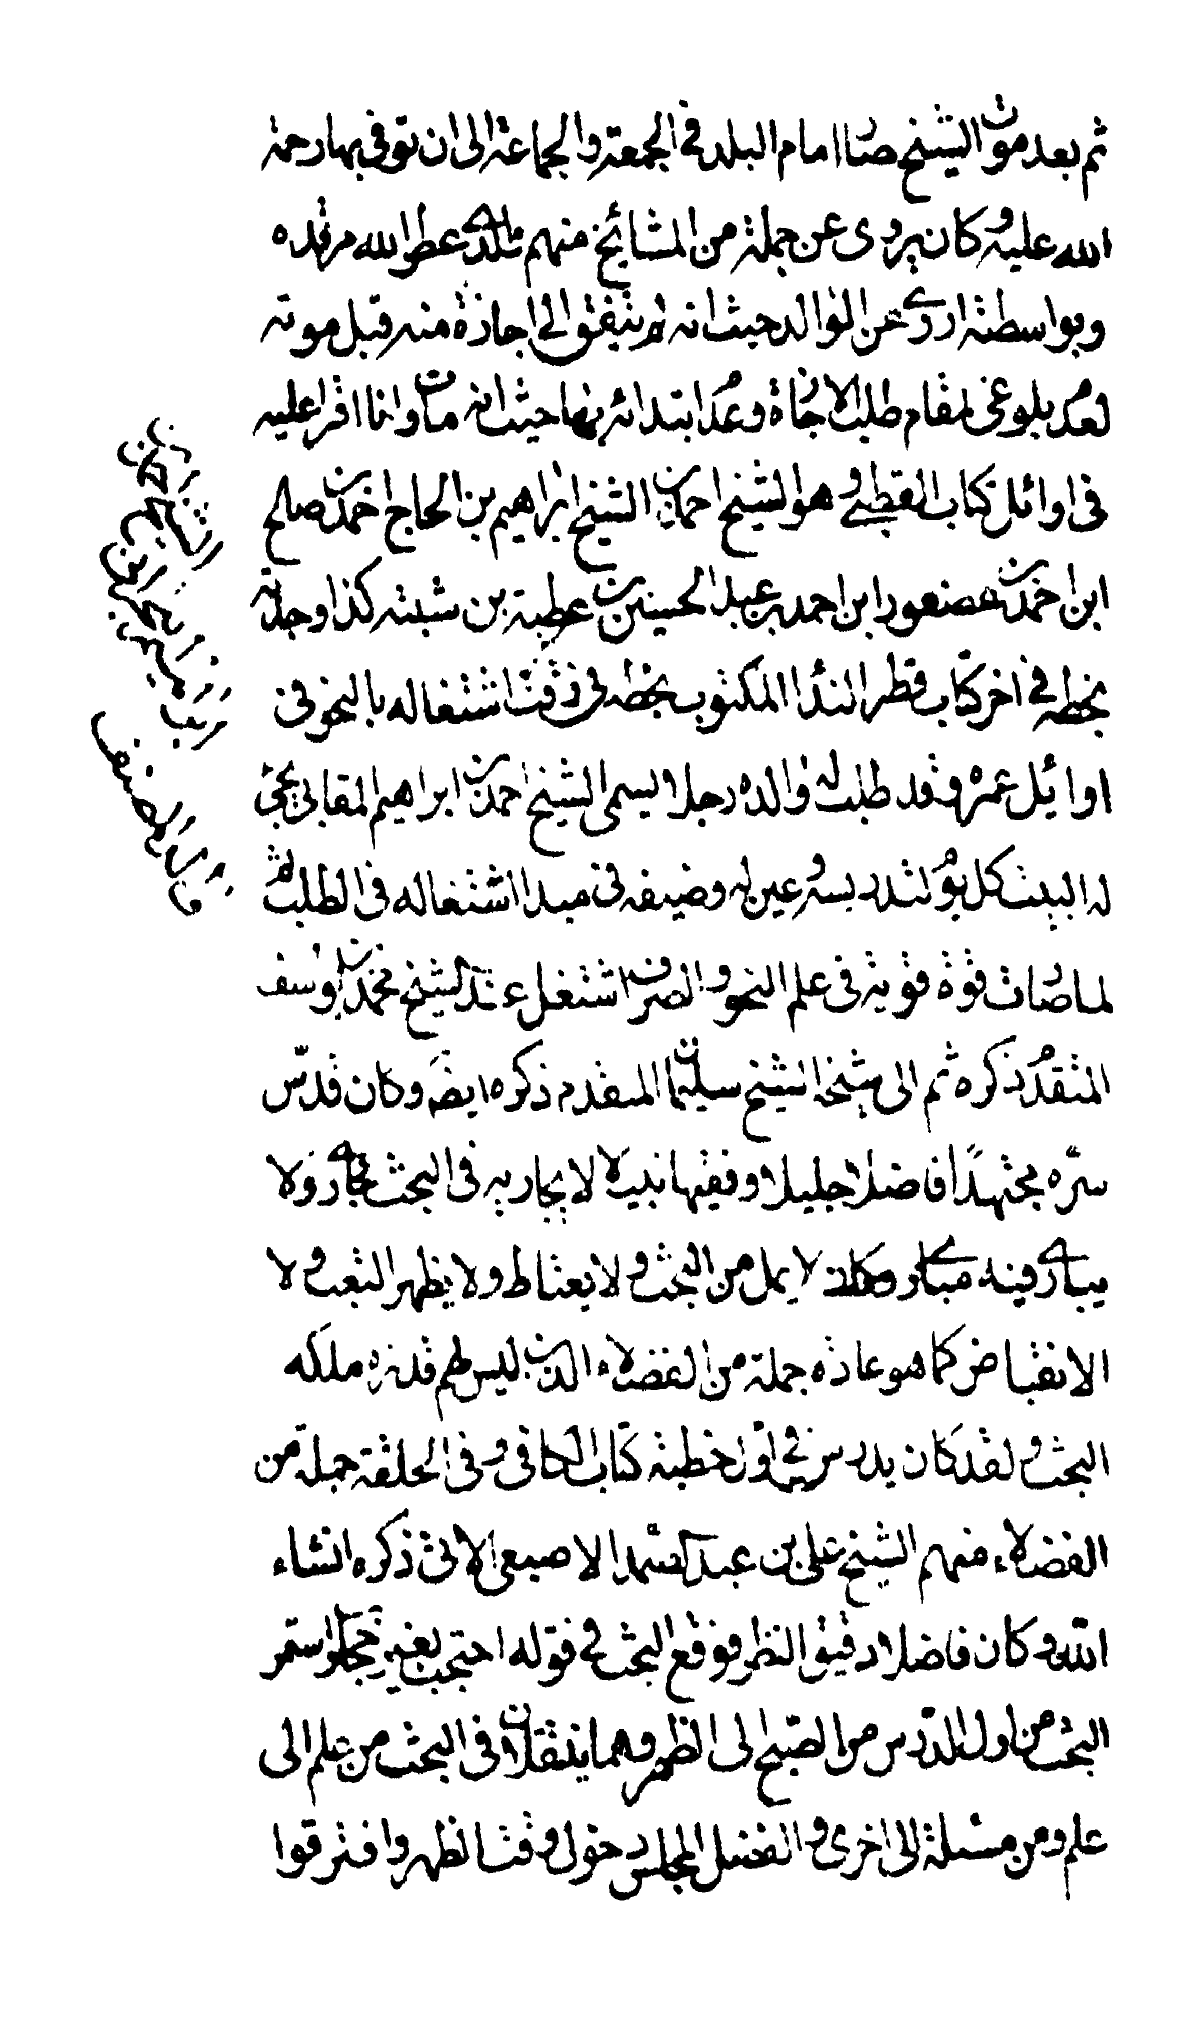 ثم بعد موت الشيخ صار امام البلد في الجمعة والجماعة الى ان توفي بها رحمة
الله عليه وكان يروي عن جملة من المشائخ منهم والدي عطر الله مرقده
وبواسطته اروي عن الوالد حيث انه لم يتفق لي اجازة منه قبل موته
لعدم بلوغي لمقام طلب الاجازة وعدم ابتدائه بها حيث انه مات وانا اقرا عليه
في اوائل كتاب القطبي وهو الشيخ احمد بن الشيخ ابراهيم بن الحاج احمد بن صالح
ابن احمد بن عصفور ابن احمد بن عبد الحسين بن عطية بن شيبة كذا وجدته
بخطه في اخر كتاب قطر الندا المكتوب بخطه في وقت اشتغاله بالنحو في
اوائل عمره وقد طلب له والده رجلا يسمى الشيخ احمد بن ابراهيم المقابي يجئ
له البيت كل يوم لتدريسه وعين له وضيفه في مبدا اشتغاله في الطلب ثم
لما صارت قوة قوية في علم النحو والصرف اشتغل عند الشيخ محمد بن يوسف
المتقدم ذكره ثم الى شيخه الشيخ سليمان المتقدم ذكره ايضا وكان قدس
سره مجتهدا فاضلا جليلا وفقيها نبيلا لا يجاريه في البحث مجاري ولا
يباري فيه مباري وكان لا يمل من البحث ولا يغتاظ ولا يظهر التعب ولا
الانقباض كما هو عادة جملة من الفضلاء الذين ليس لهم قدرة ملكه
البحث ولقد كان يدرس في اول خطبة كتاب الكافي وفي الحلقة جملة من
الفضلاء منهم الشيخ علي بن عبد الصمد الاصبعي الاتي ذكره انشاء
الله وكان فاضلا دقيق النظر فوقع البحث في قوله احتجب بغير حجاب واستمر
البحث من اول الدرس من الصبح الى الظهر وهما ينتقلان في البحث من علم الى
علم ومن مسئلة الى اخرى والفضل المجلس دخول وقت الظهر وافترقوا